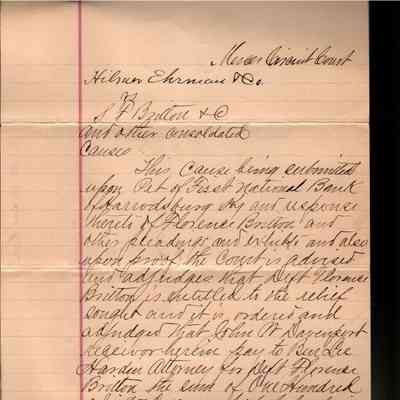 Mercer Circuit Court
Hilmer Ehrman & Co.
S F Britton & C
and other consolidated
Causes
This Cause being submitted
upon Pet of First National Bank
of Harrodsburg Ky and response
thereto of Florence Britton and
other pleadings and exhibits and also
upon proof the Court is advised
and adjudges that Deft Florence
Britton is entitled to the relief
sought and it is ordered and
adjudged that John W Davenport
Receiver herein pay to Ben Lee
Hardin Attorney for Deft Florence
Britton the sum of One Hundred